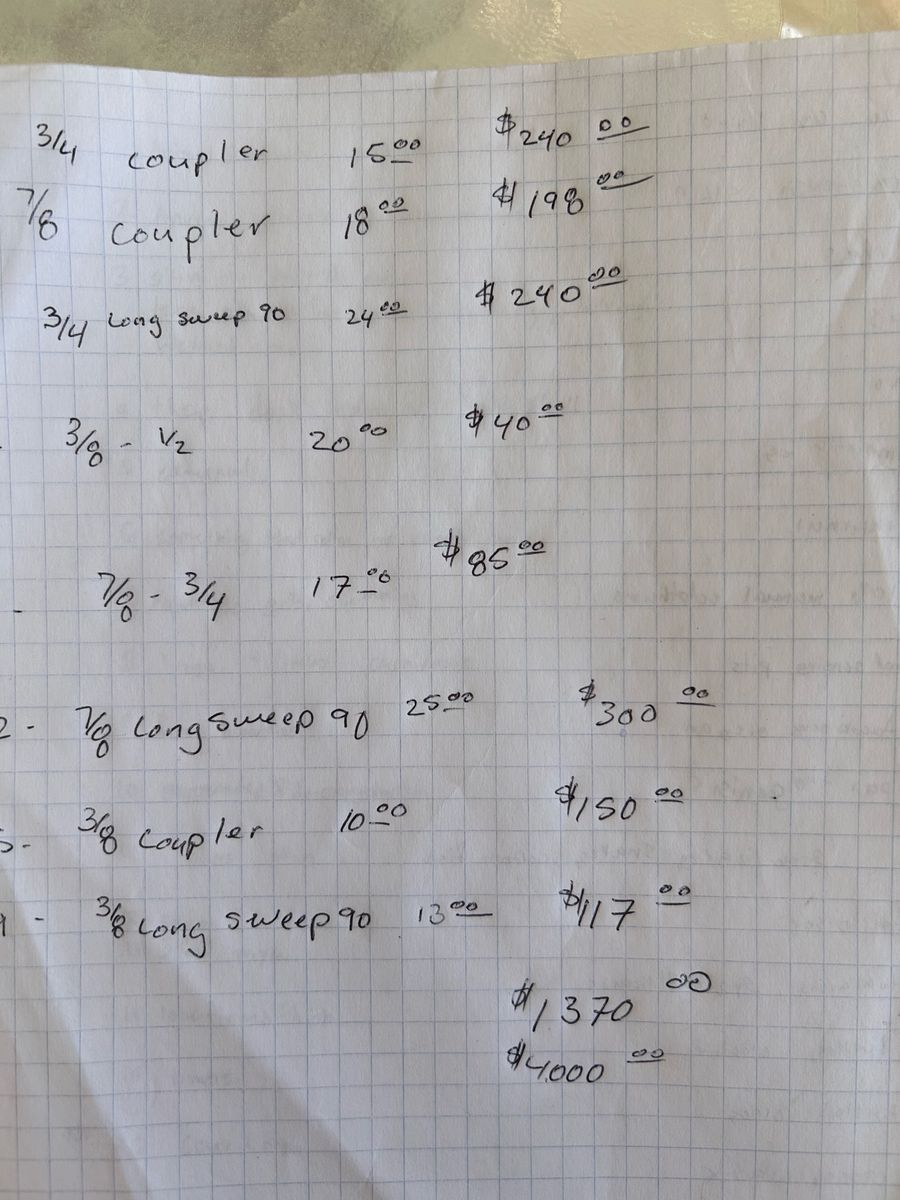 3/4 coupler 15.00 $240.00
7/8 coupler 18.00 $198.00
3/4 Long sweep 90 24.00 $240.00
3/8 - 1/2 20.00 $40.00
- 7/8 - 3/4 17.00 $85.00
2 - 7/8 Long sweep 90 25.00 $300.00
5 - 3/8 coupler 10.00 $150.00
- 3/8 Long sweep 90 13.00 $117.00
$1370.00
$4000.00